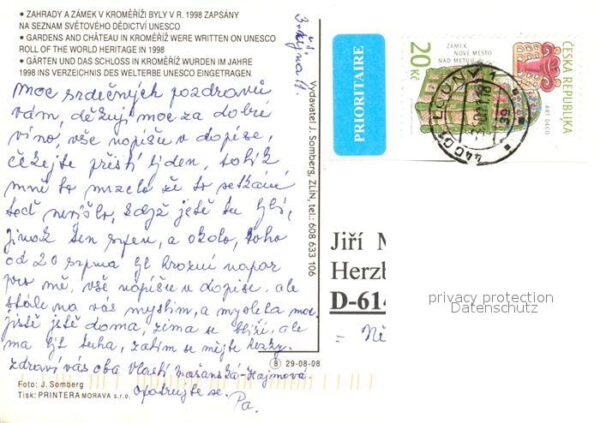 • ZAHRADY A ZÁMEK V KROMĚŘÍŽI BYLY V R. 1998 ZAPSÁNY
NA SEZNAM SVĚTOVÉHO DĚDICTVÍ UNESCO
• GARDENS AND CHÂTEAU IN KROMĚŘÍŽ WERE WRITTEN ON UNESCO
ROLL OF THE WORLD HERITAGE IN 1998
• GÄRTEN UND DAS SCHLOSS IN KROMĚŘÍŽ WURDEN IM JAHRE
1998 INS VERZEICHNIS DES WELTERBE UNESCO EINGETRAGEN
moc srdečných pozdravů
vám, děkuji moc za dobré
víno, vše napíšu v dopise,
čekejte příští týden, tolik
mně to mrzelo že to setkání
teď nevyšlo, když jste tu byli,
jinak ten srpen, a okolo toho
od 20 srpna byl hrozný nápor
pro mě, vše napíšu v dopise, ale
stále na vás myslím, a myslela moc
jistě jste doma, zima se blíží, ale
má být tuhá, zatím se mějte hezky.
zdraví vás oba Vlasti
opatrujte se. Pa.
Foto: J. Somberg
Tisk: PRINTERA MORAVA s.r.o.
8 29-08-08
Vydavatel J. Somberg, ZLÍN, tel.: 608 633 106
PRIORITAIRE
20 Kč
ZÁMEK
NOVÉ MĚSTO
NAD METUJÍ
ART DECO
ČESKÁ REPUBLIKA
LOUNY 1
Jiří M
Herzb
D-614
= Ně
privacy protection
Datenschutz